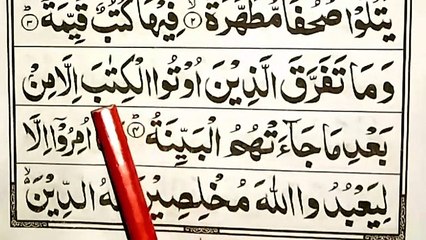 يَتْلُوْا صُحُفًا مُّطَهَّرَةً ۙ‏﴿۲﴾ فِيْهَا كُتُبٌ قَيِّمَةٌ ؕ‏﴿۳﴾
وَمَا تَفَرَّقَ الَّذِيْنَ اُوْتُوا الْكِتٰبَ اِلَّا مِنْۢ
بَعْدِ مَا جَآءَتْهُمُ الْبَيِّنَةُ ؕ‏﴿۴﴾ اُمِرُوْۤا اِلَّا
لِيَعْبُدُوا اللّٰهَ مُخْلِصِيْنَ لَهُ الدِّيْنَ ۙ